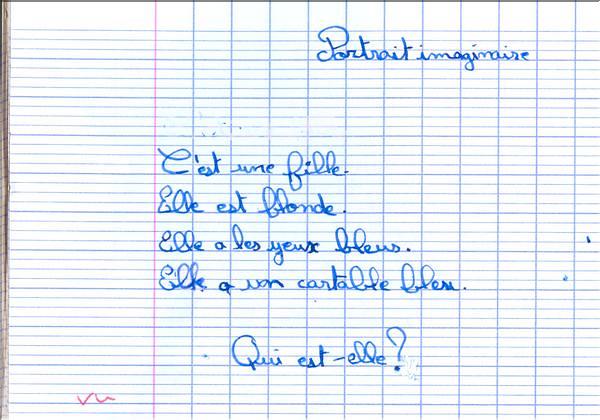 Portrait imaginaire
C'est une fille.
Elle est blonde.
Elle a les yeux bleus.
Elle a un cartable bleu.
Qui est-elle?
vu